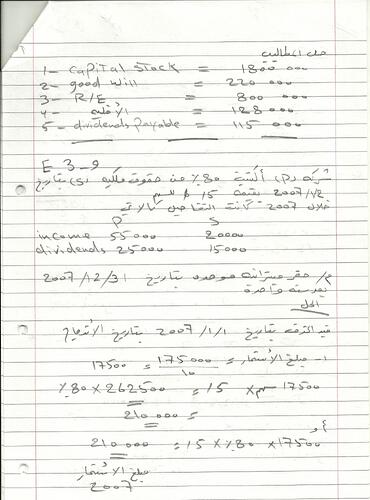 حل المطالب
1- capital stock = 1800 000
2- good will = 220 000
3- R/E = 800 000
4- الأقلية = 128 000
5- dividends payable = 115 000
E 3-9
شركة (P) أكتسبت 80٪ من حقوق ملكية (S) بتاريخ
2007/1/2 بقيمة 15 $ للسهم
خلال 2007 كانت التفاصيل كالاتي
P S
income 55000 20000
dividends 25000 15000
م/ حضر ميزانية موحدة بتاريخ 2007/12/31
الحل
قيد الشركة بتاريخ 2007/1/1 بتاريخ الأندماج
1- مبلغ الأستثمار = 175000 / 10 = 17500
17500 سهم × 15 = 262500 × 80٪
= 210 000
أو
17500 × 80٪ × 15 = 210 000
مبلغ الاستثمار
2007